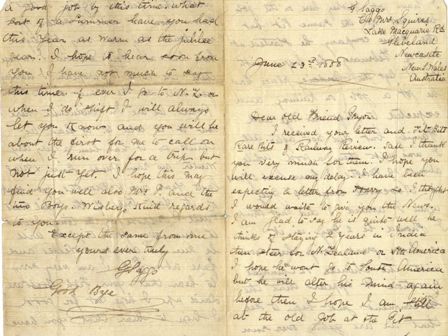 G Saggs
C/o Mrs Squires
Lake Macquarie Rd
Newcastle
New S Wales
Australia
June 23rd 1888
Dear Old Friend Pryor
I received your letter and
& Railway Review. Safe I thank
you very much for them. I hope you
will excuse my delay. I have been
expecting a letter from Harry so I thought
I would write to give you the News.
I am glad to say he is quite well he
thinks of staying 2 years in India
then steer for N. Zealand or Sth America
I hope he wont go to South America
but he will alter his mind again
before then I hope I am still
at the old Job at the Pit
a good Job by this time. What
sort of a Summer have you had
this Year as warm as the Jubilee
Year. I hope to hear soon from
You I have not much to say
this time. if ever I go to N. Z. or
when I do shift I will always
let you know and you will be
about the first for me to call on
when I run over for a trip but
not just yet. I hope this may
find you well also Mrs P and the
two Boys. Wishing kind regards
to you
Except the same from me
yours ever truly
G Saggs
Good Bye